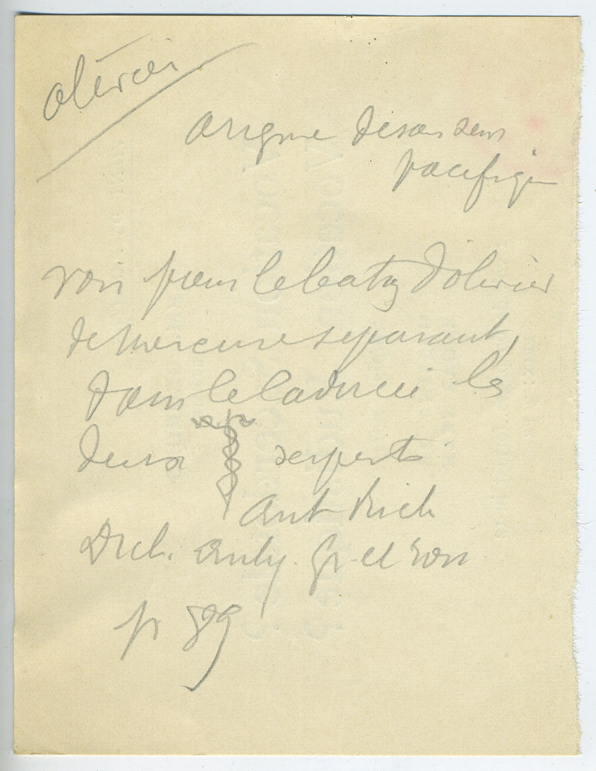 olivier
origine de son sens
pacifique
voir pour le baton d'olivier
de Mercure separant,
dans le caducée les
deux serpents
Ant Rich
Dict. antiq. gr. et rom
p 89